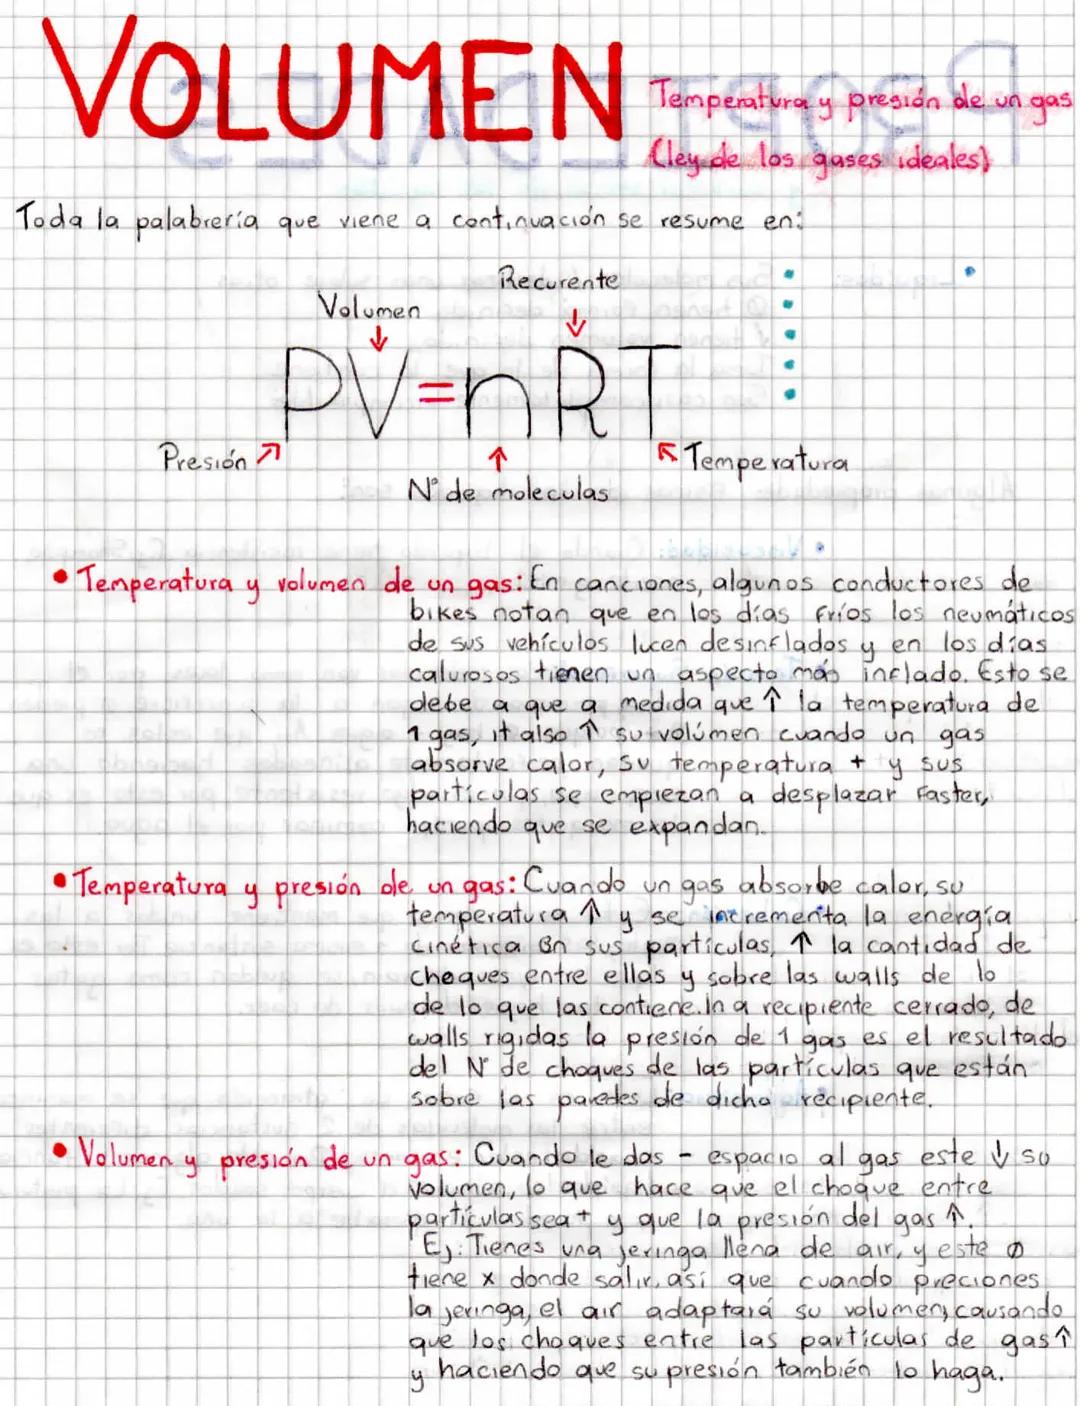 VOLUMEN
Temperatura y presión de un gas
(ley de los gases ideales)
Toda la palabrería que viene a continuación se resume en:
Recurente
Volumen
PV=nRT
Presión
Temperatura
N° de moleculas
• Temperatura y volumen de un gas: En canciones, algunos conductores de
bikes notan que en los días fríos los neumáticos
de sus vehículos lucen desinflados y en los días
calurosos tienen un aspecto más inflado. Esto se
debe a que a medida que ↑ la temperatura de
1 gas, it also ↑ su volúmen cuando un gas
absorve calor, su temperatura + y sus
partículas se empiezan a desplazar faster,
haciendo que se expandan.
• Temperatura y presión de un gas: Cuando un gas absorbe calor, su
temperatura ↑ y se incrementa la energía
cinética en sus partículas, ↑ la cantidad de
choques entre ellas y sobre las walls de lo
de lo que las contiene. In a recipiente cerrado, de
walls rigidas la presión de 1 gas es el resultado
del N° de choques de las partículas que están
sobre las paredes de dicho recipiente.
• Volumen y presión de un gas: Cuando le das - espacio al gas este ↓ su
volumen, lo que hace que el choque entre
partículas sea + y que la presión del gas ↑.
Ej: Tienes una jeringa llena de air, y este Ø
tiene x donde salir, así que cuando preciones
la jeringa, el air adaptará su volumen, causando
que los choques entre las partículas de gas ↑
y haciendo que su presión también lo haga.